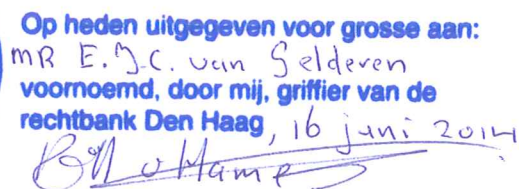 Op heden uitgegeven voor grosse aan:
MR E.J.C. van Gelderen
voornoemd, door mij, griffier van de
rechtbank Den Haag, 16 juni 2014